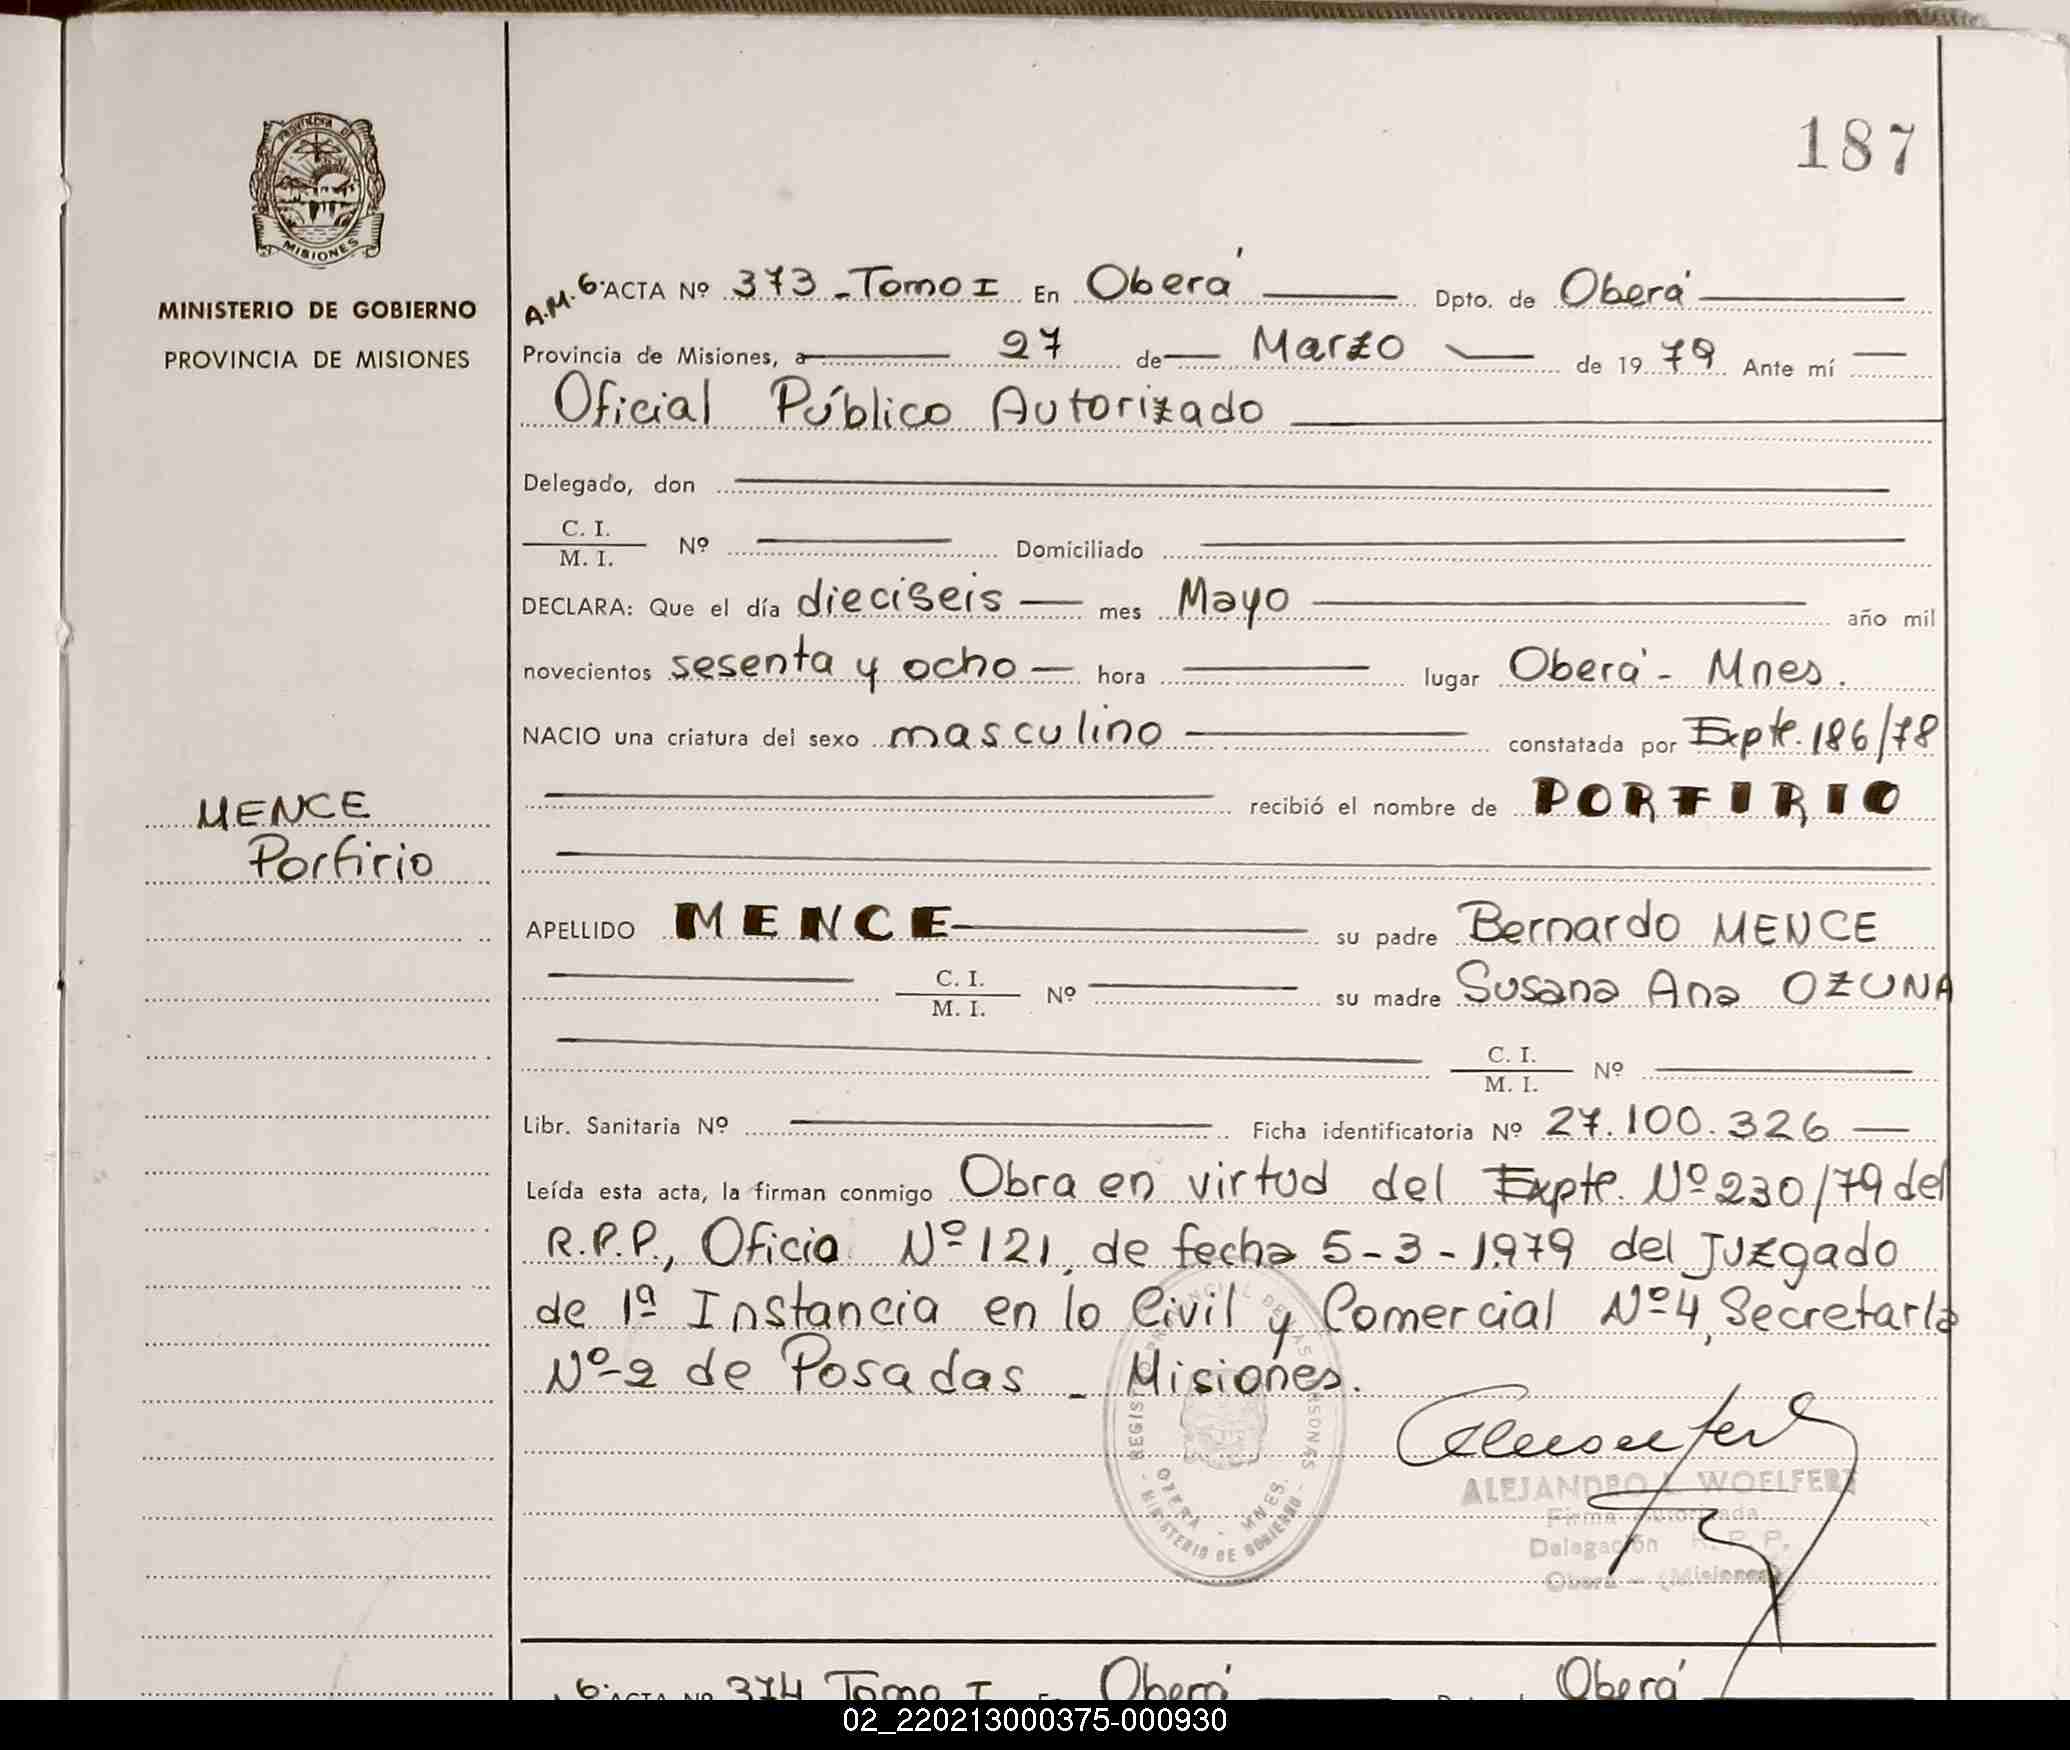 187
PROVINCIA DE
MISIONES
MINISTERIO DE GOBIERNO
PROVINCIA DE MISIONES
MENCE
Porfirio
A.M. 6. ACTA Nº 373 - Tomo I En Oberá Dpto. de Oberá
Provincia de Misiones, a 27 de Marzo de 1979 Ante mí
Oficial Público Autorizado
Delegado, don
C. I.
M. I. Nº Domiciliado
DECLARA: Que el día dieciseis mes Mayo año mil
novecientos sesenta y ocho hora lugar Oberá - Mnes.
NACIO una criatura del sexo masculino constatada por Expte. 186/78
recibió el nombre de PORFIRIO
APELLIDO MENCE su padre Bernardo MENCE
C. I.
M. I. Nº su madre Susana Ana OZUNA
C. I.
M. I. Nº
Libr. Sanitaria Nº Ficha identificatoria Nº 27.100.326
Leída esta acta, la firman conmigo Obra en virtud del Expte. Nº 230/79 del
R.P.P., Oficio Nº 121, de fecha 5-3-1979 del Juzgado
de 1ª Instancia en lo Civil y Comercial Nº 4, Secretaría
Nº 2 de Posadas - Misiones.
REGISTRO PROVINCIAL DE LAS PERSONAS
OBERA - MNES.
- MINISTERIO DE GOBIERNO -
ALEJANDRO L. WOELFERT
Firma Autorizada
Delegación R. P. P.
Oberá - (Misiones)
6. ACTA Nº 374 Tomo I En Oberá Oberá
02_220213000375-000930